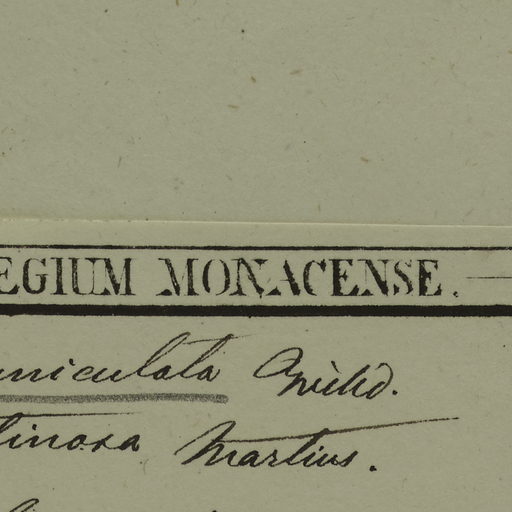 EGIUM MONACENSE.
niculata Willd.
tinosa Martius.